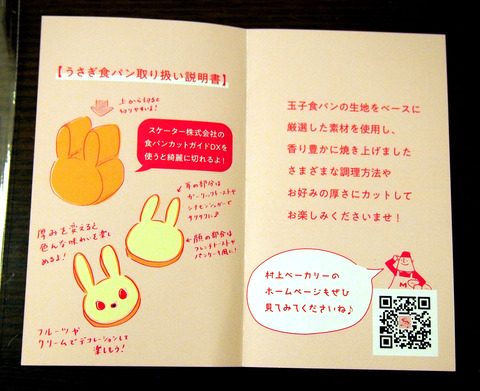 【うさぎ食パン取り扱い説明書】
上から切ると
切りやすいよ!
スケーター株式会社の
食パンカットガイドDXを
使うと綺麗に切れるよ!
耳の部分は
ガーリックトーストや
シナモンシュガーで
サクサクに
厚みを変えると
色んな味わいを楽し
めるよ!
顔の部分は
フレンチトーストや
バンズ風に!
フルーツや
クリームでデコレーションして
楽しもう!
玉子食パンの生地をベースに
厳選した素材を使用し、
香り豊かに焼き上げました
さまざまな調理方法や
お好みの厚さにカットして
お楽しみくださいませ!
村上ベーカリーの
ホームページもぜひ
見てみてくださいね♪
M
S